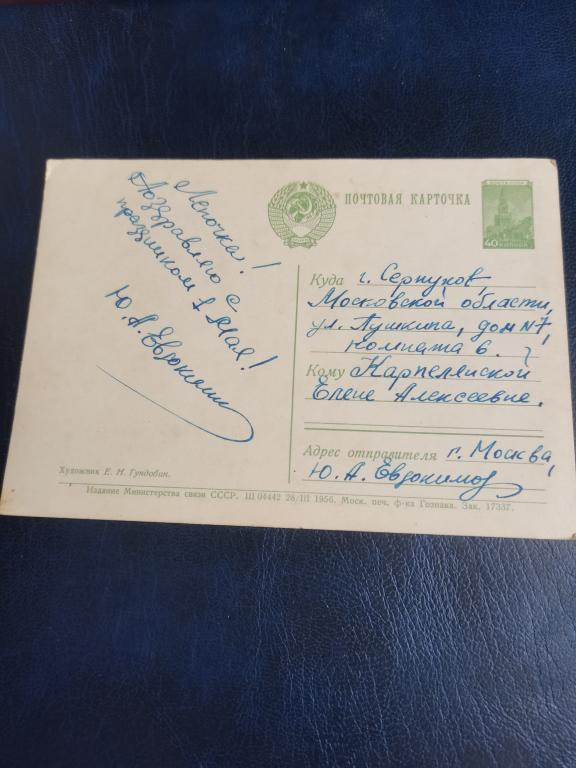 Леночка!
Поздравляю с
праздником 1 Мая!
Ю. А. Евдокимов
ПОЧТОВАЯ КАРТОЧКА
40
Куда г. Серпухов,
Московской области,
ул. Пушкина, дом №7,
комната 6.
Кому Карпелейской
Елене Алексеевне.
Адрес отправителя г. Москва,
Ю. А. Евдокимов
Художник Е. Н. Гундобин.
Издание Министерства связи СССР. Ш 04442 28/III 1956. Моск. печ. ф-ка Гознака. Зак. 17337.